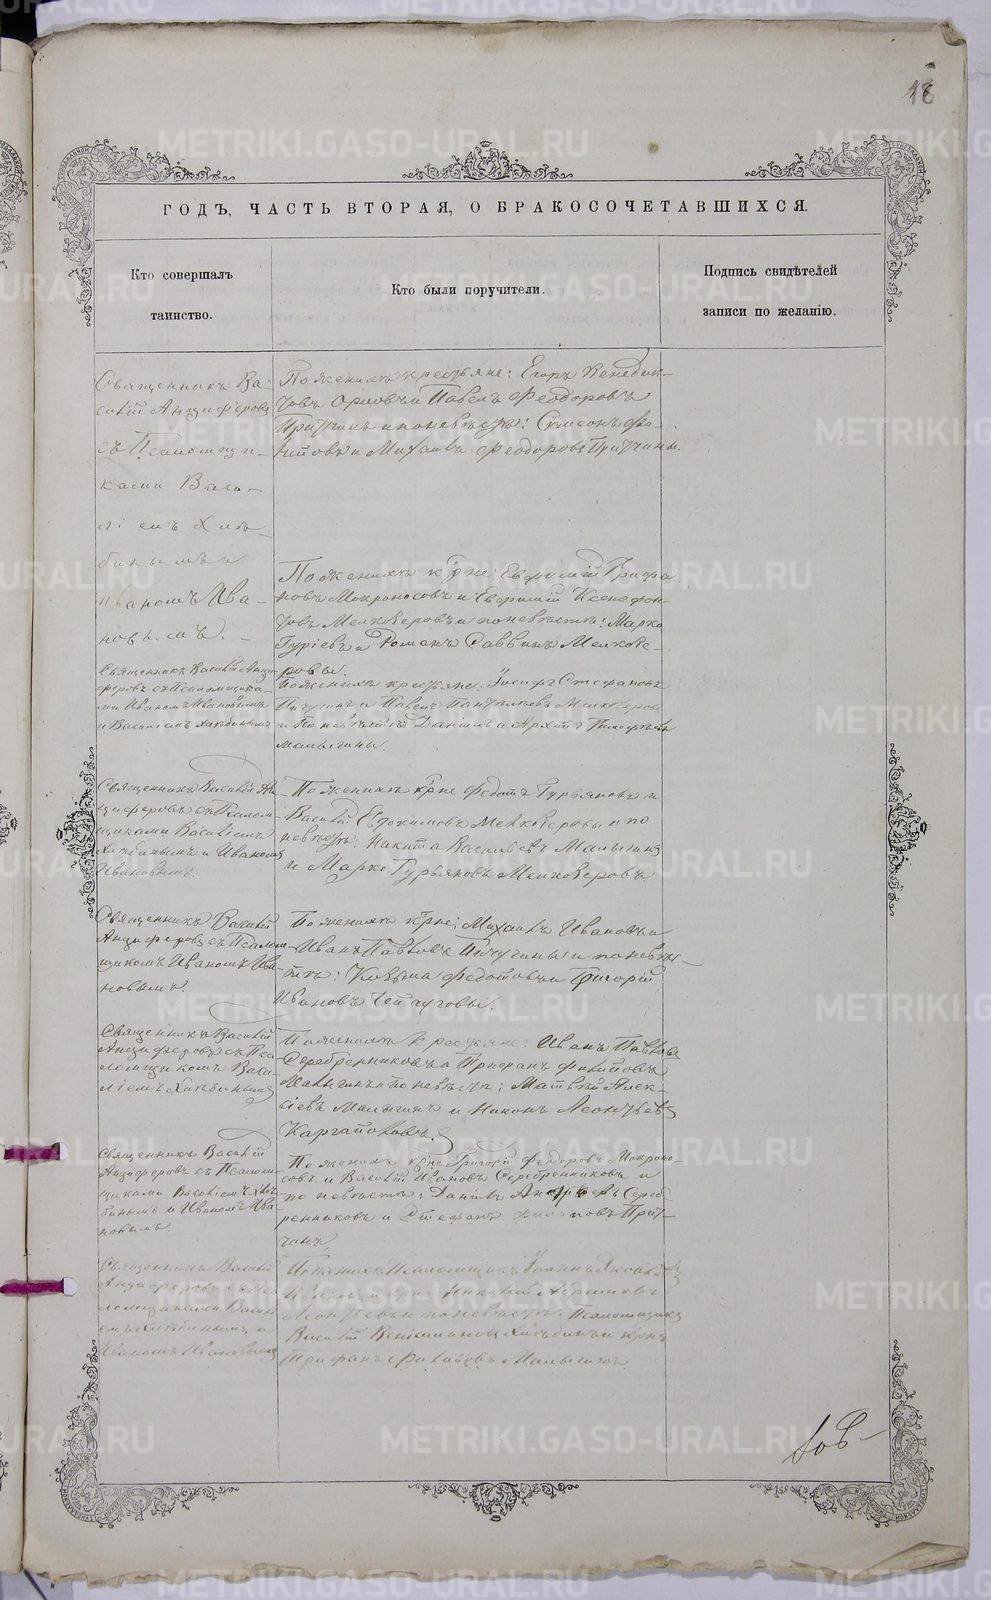 18
ГОДЪ, ЧАСТЬ ВТОРАЯ, О БРАКОСОЧЕТАВШИХСЯ.
Кто совершалъ
таинство.
Кто были поручители.
Подпись свидѣтелей
записи по желанію.
Священникъ Ва-
силій Анциферовъ
съ Псаломщи-
ками Васи-
ліемъ Хлѣ-
бинымъ и
Иваномъ Ива-
новымъ.
По женихѣ крестьяне: Егоръ Венедик-
товъ Орловъ и Павелъ Феодоровъ
и по невѣстѣ: Симеонъ
и Михаилъ Феодоровъ
По женихѣ кр-не: Евфимій Трифа-
новъ Мокроносовъ и Евфимій Ксенофон-
товъ Мелковеровъ и по невѣстѣ: Марко
Гуріевъ и Романъ Саввинъ Мелкове-
ровы.
Священникъ Василій Анци-
феровъ съ Псаломщика-
ми Иваномъ Ивановымъ
и Василіемъ Хлѣбинымъ
По женихѣ крестьяне: Іосифъ Стефановъ
Пичугинъ и Павелъ Пантелеевъ Мелковеровъ
и по невѣстѣ Даніилъ и Архипъ Тимофѣевы
Малыгины.
Священникъ Василій Ан-
циферовъ съ Псалом-
щиками Василіемъ
Хлѣбинымъ и Иваномъ
Ивановымъ.
По женихѣ кр-не Федотъ Гурьяновъ и
Василій Евдокимовъ Мелковеровы и по
невѣстѣ: Никита Васильевъ Малыгинъ
и Марко Гурьяновъ Мелковеровъ
Священникъ Василій
Анциферовъ съ Псалом-
щикомъ Иваномъ Ива-
новымъ.
По женихѣ кр-не: Михаилъ Ивановъ и
Иванъ Павловъ Пичугины и по невѣс-
тѣ: Козьма Федотовъ и Григорій
Ивановъ Чепчуговы.
Священникъ Василій
Анциферовъ съ Пса-
ломщикомъ Васи-
ліемъ Хлѣбинымъ
По женихѣ крестьяне: Иванъ Павловъ
Серебренниковъ и Трифанъ Филиповъ
Малыгинъ и по невѣстѣ: Матвѣй Алек-
сіевъ Малыгинъ и Никонъ Леонтьевъ
Каргаполовъ.
Священникъ Василій
Анциферовъ съ Псалом-
щиками Василіемъ Хлѣ-
бинымъ и Иваномъ Ива-
новымъ.
По женихѣ кр-не Григорій Феодоровъ Мокроно-
совъ и Василій Ивановъ Серебренниковъ и
по невѣстѣ: Даніилъ Андреевъ Сереб-
ренниковъ и Стефанъ Филиповъ
Священникъ Василій
Анциферовъ съ Пса-
ломщиками Васи-
ліемъ Хлѣбинымъ и
Иваномъ Ивановымъ
По женихѣ Псаломщикъ Іоаннъ Яковлевъ
и кр-нъ Николай Абрамовъ
Леонтьевъ и по невѣстѣ: Псаломщикъ
Василій Веніаминовъ Хлѣбинъ и кр-нъ
Трифанъ Филиповъ Малыгинъ
METRIKI.GASO-URAL.RU